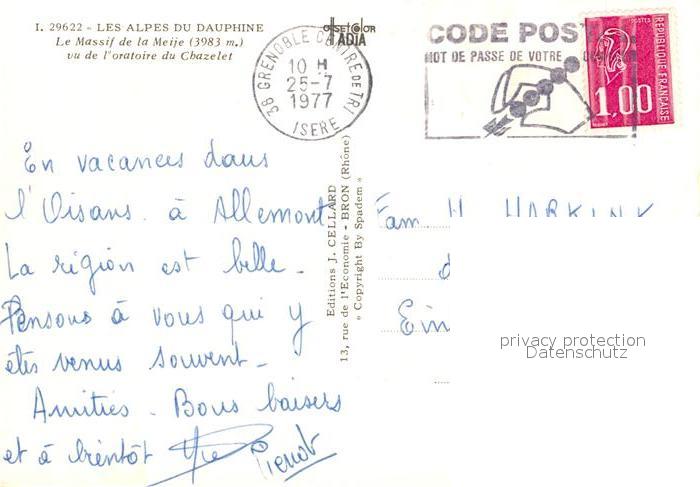 I. 29622 - LES ALPES DU DAUPHINE
Le Massif de la Meije (3983 m.)
vu de l'oratoire du Chazelet
38 GRENOBLE CENTRE DE TRI
10 H
25-7
1977
ISERE
CODE POST
MOT DE PASSE DE VOTRE
POSTES
REPUBLIQUE FRANÇAISE
1,00
En vacances dans
l'Oisans. à Allemont
La région est belle -
Pensons à vous qui y
êtes venus souvent -
Amitiés - Bons baisers
et à bientôt
Editions J. CELLARD
13, rue de l'Economie - BRON (Rhône)
« Copyright By Spadem »
Fam. H.
d
Ein
privacy protection
Datenschutz